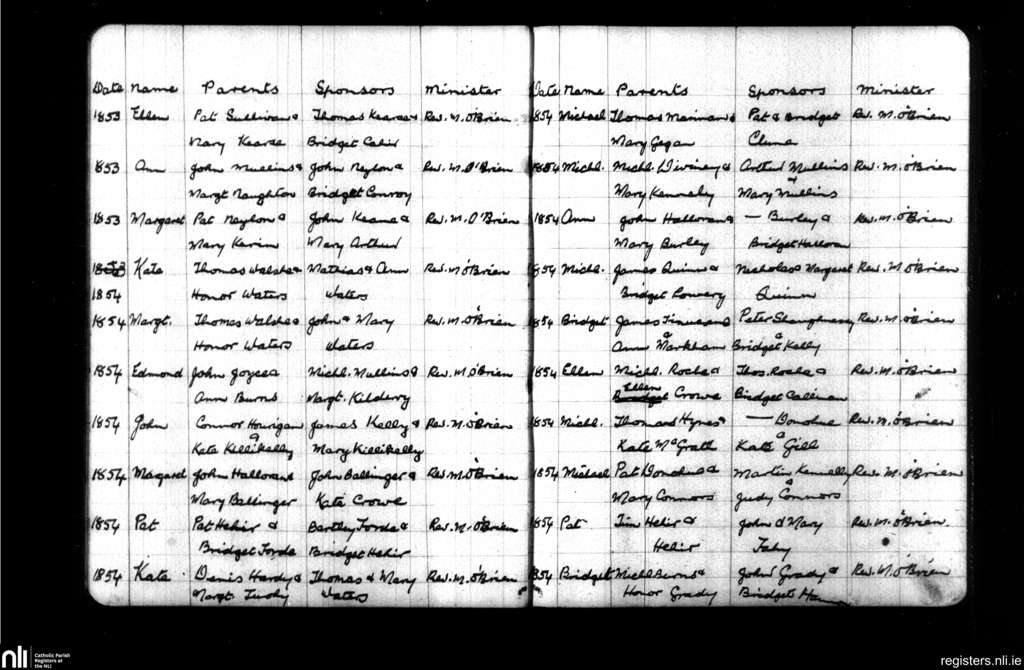 Date Name Parents Sponsors Minister
1853 Ellen Pat Sullivan & Thomas Kearse & Rev. M. O'Brien
Mary Kearse Bridget Cahir
1853 Ann John Mullins & John Neylon & Rev. M. O'Brien
Margt Naughton Bridget Conroy
1853 Margaret Pat Neylon & John Keane & Rev. M. O'Brien
Mary Kerin Mary Arthur
1853 Kate Thomas Walshe & Mathias & Ann Rev. M. O'Brien
1854 Honor Waters Waters
1854 Margt. Thomas Walshe & John & Mary Rev. M. O'Brien
Honor Waters Waters
1854 Edmond John Joyce & Michl. Mullins & Rev. M. O'Brien
Ann Burns Margt. Kilderry
1854 John Connor Hourigan James Kelly & Rev. M. O'Brien
& Kate Killikelly Mary Killikelly
1854 Margaret John Halloran & John Ballinger & Rev. M. O'Brien
Mary Ballinger Kate Crowe
1854 Pat Pat Hehir & Bartley Forde & Rev. M. O'Brien
Bridget Forde Bridget Hehir
1854 Kate Denis Hardy & Thomas & Mary Rev. M. O'Brien
Margt. Tuohy Waters
Date Name Parents Sponsors Minister
1854 Michael Thomas Marinan & Pat & Bridget Rev. M. O'Brien
Mary Gegan Clune
1854 Michl. Michl. Diviney & Arthur Mullins Rev. M. O'Brien
Mary Kennedy & Mary Mullins
1854 Ann John Halloran & — Burley & Rev. M. O'Brien
Mary Burley Bridget Halloran
1854 Michl. James Quinn & Nicholas & Margaret Rev. M. O'Brien
Bridget Quinn
1854 Bridget James Rev. M. O'Brien
& Ann Markham & Bridget Kelly
1854 Ellen Michl. Roche & Thos. Roche & Rev. M. O'Brien
Ellen
Bridget Crowe Bridget Callinan
1854 Michl. Thomas Hynes — Donohue Rev. M. O'Brien
Kate McGrath & Kate Gill
1854 Michael Pat Donohue & Martin Kennelly Rev. M. O'Brien
Mary Connors & Judy Connors
1854 Pat Tim Hehir & John & Mary Rev. M. O'Brien
Hehir Fahy
1854 Bridget Michl Burns & John Grady & Rev. M. O'Brien
Honor Grady Bridget
nli Catholic Parish
Registers at
the NLI
registers.nli.ie